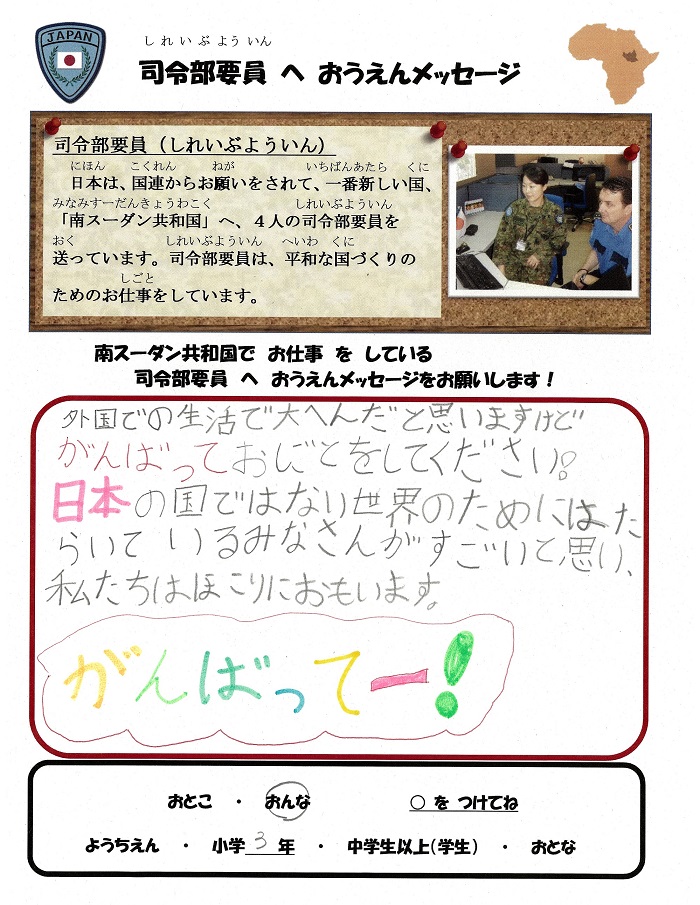 JAPAN
しれいぶよういん
司令部要員 へ おうえんメッセージ
司令部要員（しれいぶよういん）
にほん こくれん ねが いちばんあたら くに
日本は、国連からお願いをされて、一番新しい国、
みなみすーだんきょうわこく しれいぶよういん
「南スーダン共和国」へ、４人の司令部要員を
おく しれいぶよういん へいわ くに
送っています。司令部要員は、平和な国づくりの
しごと
ためのお仕事をしています。
南スーダン共和国で お仕事 を している
司令部要員 へ おうえんメッセージをお願いします！
外国での生活で大へんだと思いますけど
がんばっておしごとをしてください!
日本の国ではない世界のためにはた
らいているみなさんがすごいと思い、
私たちはほこりにおもいます。
がんばってー!
おとこ ・ おんな ○ を つけてね
ようちえん ・ 小学3年 ・ 中学生以上（学生） ・ おとな